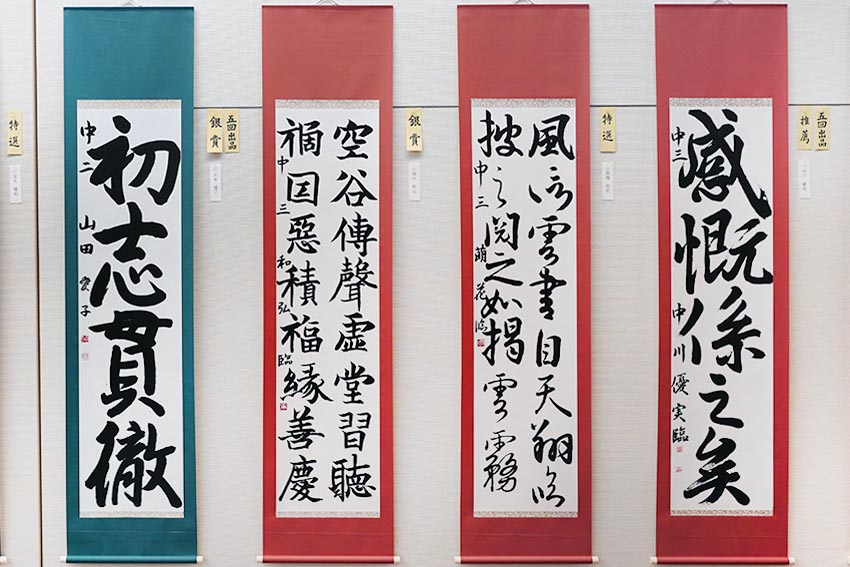 五回出品
推薦
感慨係之矣
中三 中川優実臨
特選
風信雲書自天翔臨
披之閲之如揭雲霧
中三 萌花臨
銀賞
空谷傳聲虚堂習聽
禍因惡積福縁善慶
中三 和弘臨
五回出品
銀賞
初志貫徹
中二 山田愛子
特選